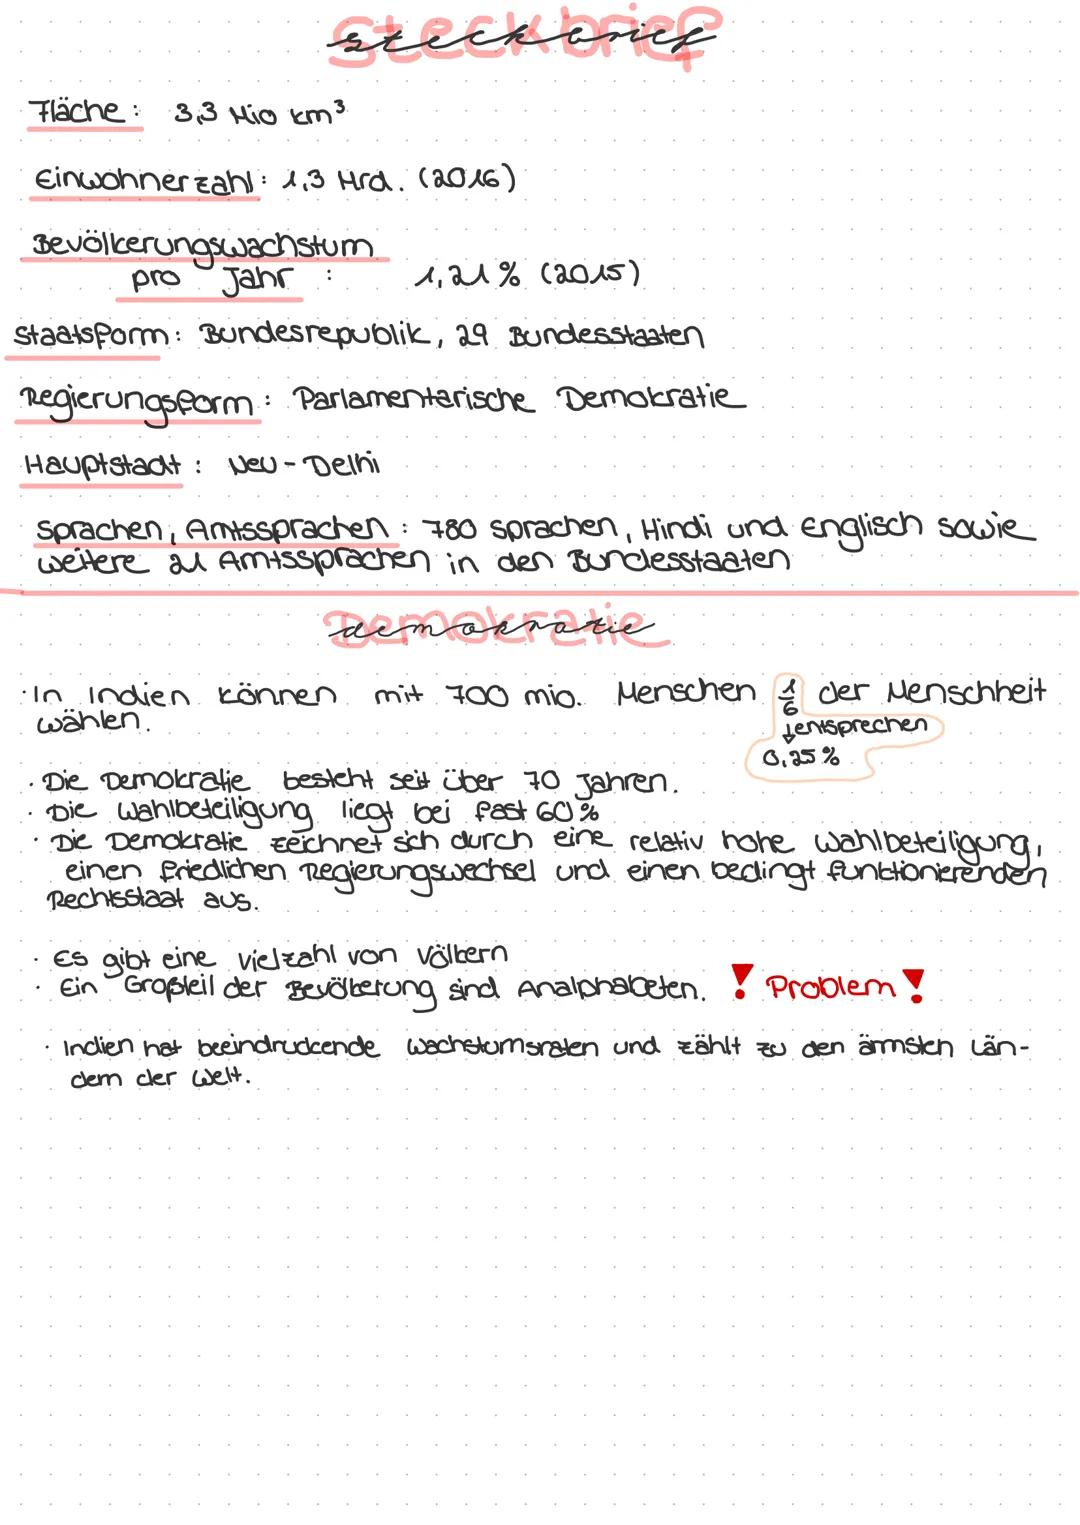 Steckbrief
Fläche: 3,3 Mio km³
Einwohnerzahl: 1,3 Mrd. (2016)
Bevölkerungswachstum
pro Jahr : 1,21% (2015)
Staatsform: Bundesrepublik, 29 Bundesstaaten
Regierungsform: Parlamentarische Demokratie
Hauptstadt: Neu-Delhi
Sprachen, Amtssprachen: 780 Sprachen, Hindi und Englisch sowie
weitere 21 Amtssprachen in den Bundesstaaten
Demokratie
· In Indien können mit 700 mio. Menschen 1/6 der Menschheit
wählen.
↓ entsprechen
0,25%
· Die Demokratie besteht seit über 70 Jahren.
· Die Wahlbeteiligung liegt bei fast 60%
· Die Demokratie zeichnet sich durch eine relativ hohe Wahlbeteiligung,
einen friedlichen Regierungswechsel und einen bedingt funktionierenden
Rechtsstaat aus.
· Es gibt eine Vielzahl von Völkern
· Ein Großteil der Bevölkerung sind Analphabeten. ! Problem !
· Indien hat beeindruckende Wachstumsraten und zählt zu den ärmsten Län-
dern der Welt.